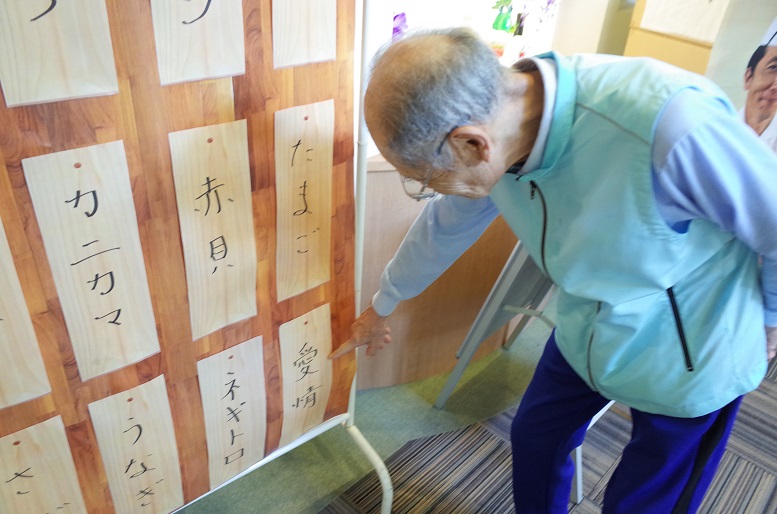 たまご
赤貝
カニカマ
愛情
ネギトロ
うなぎ